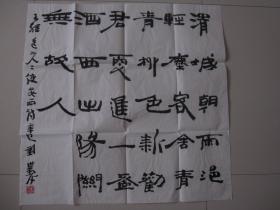 渭城朝雨浥
輕塵客舍青
青柳色新勸
君更進一盃
酒西出陽關
無故人
王維送元二使安西